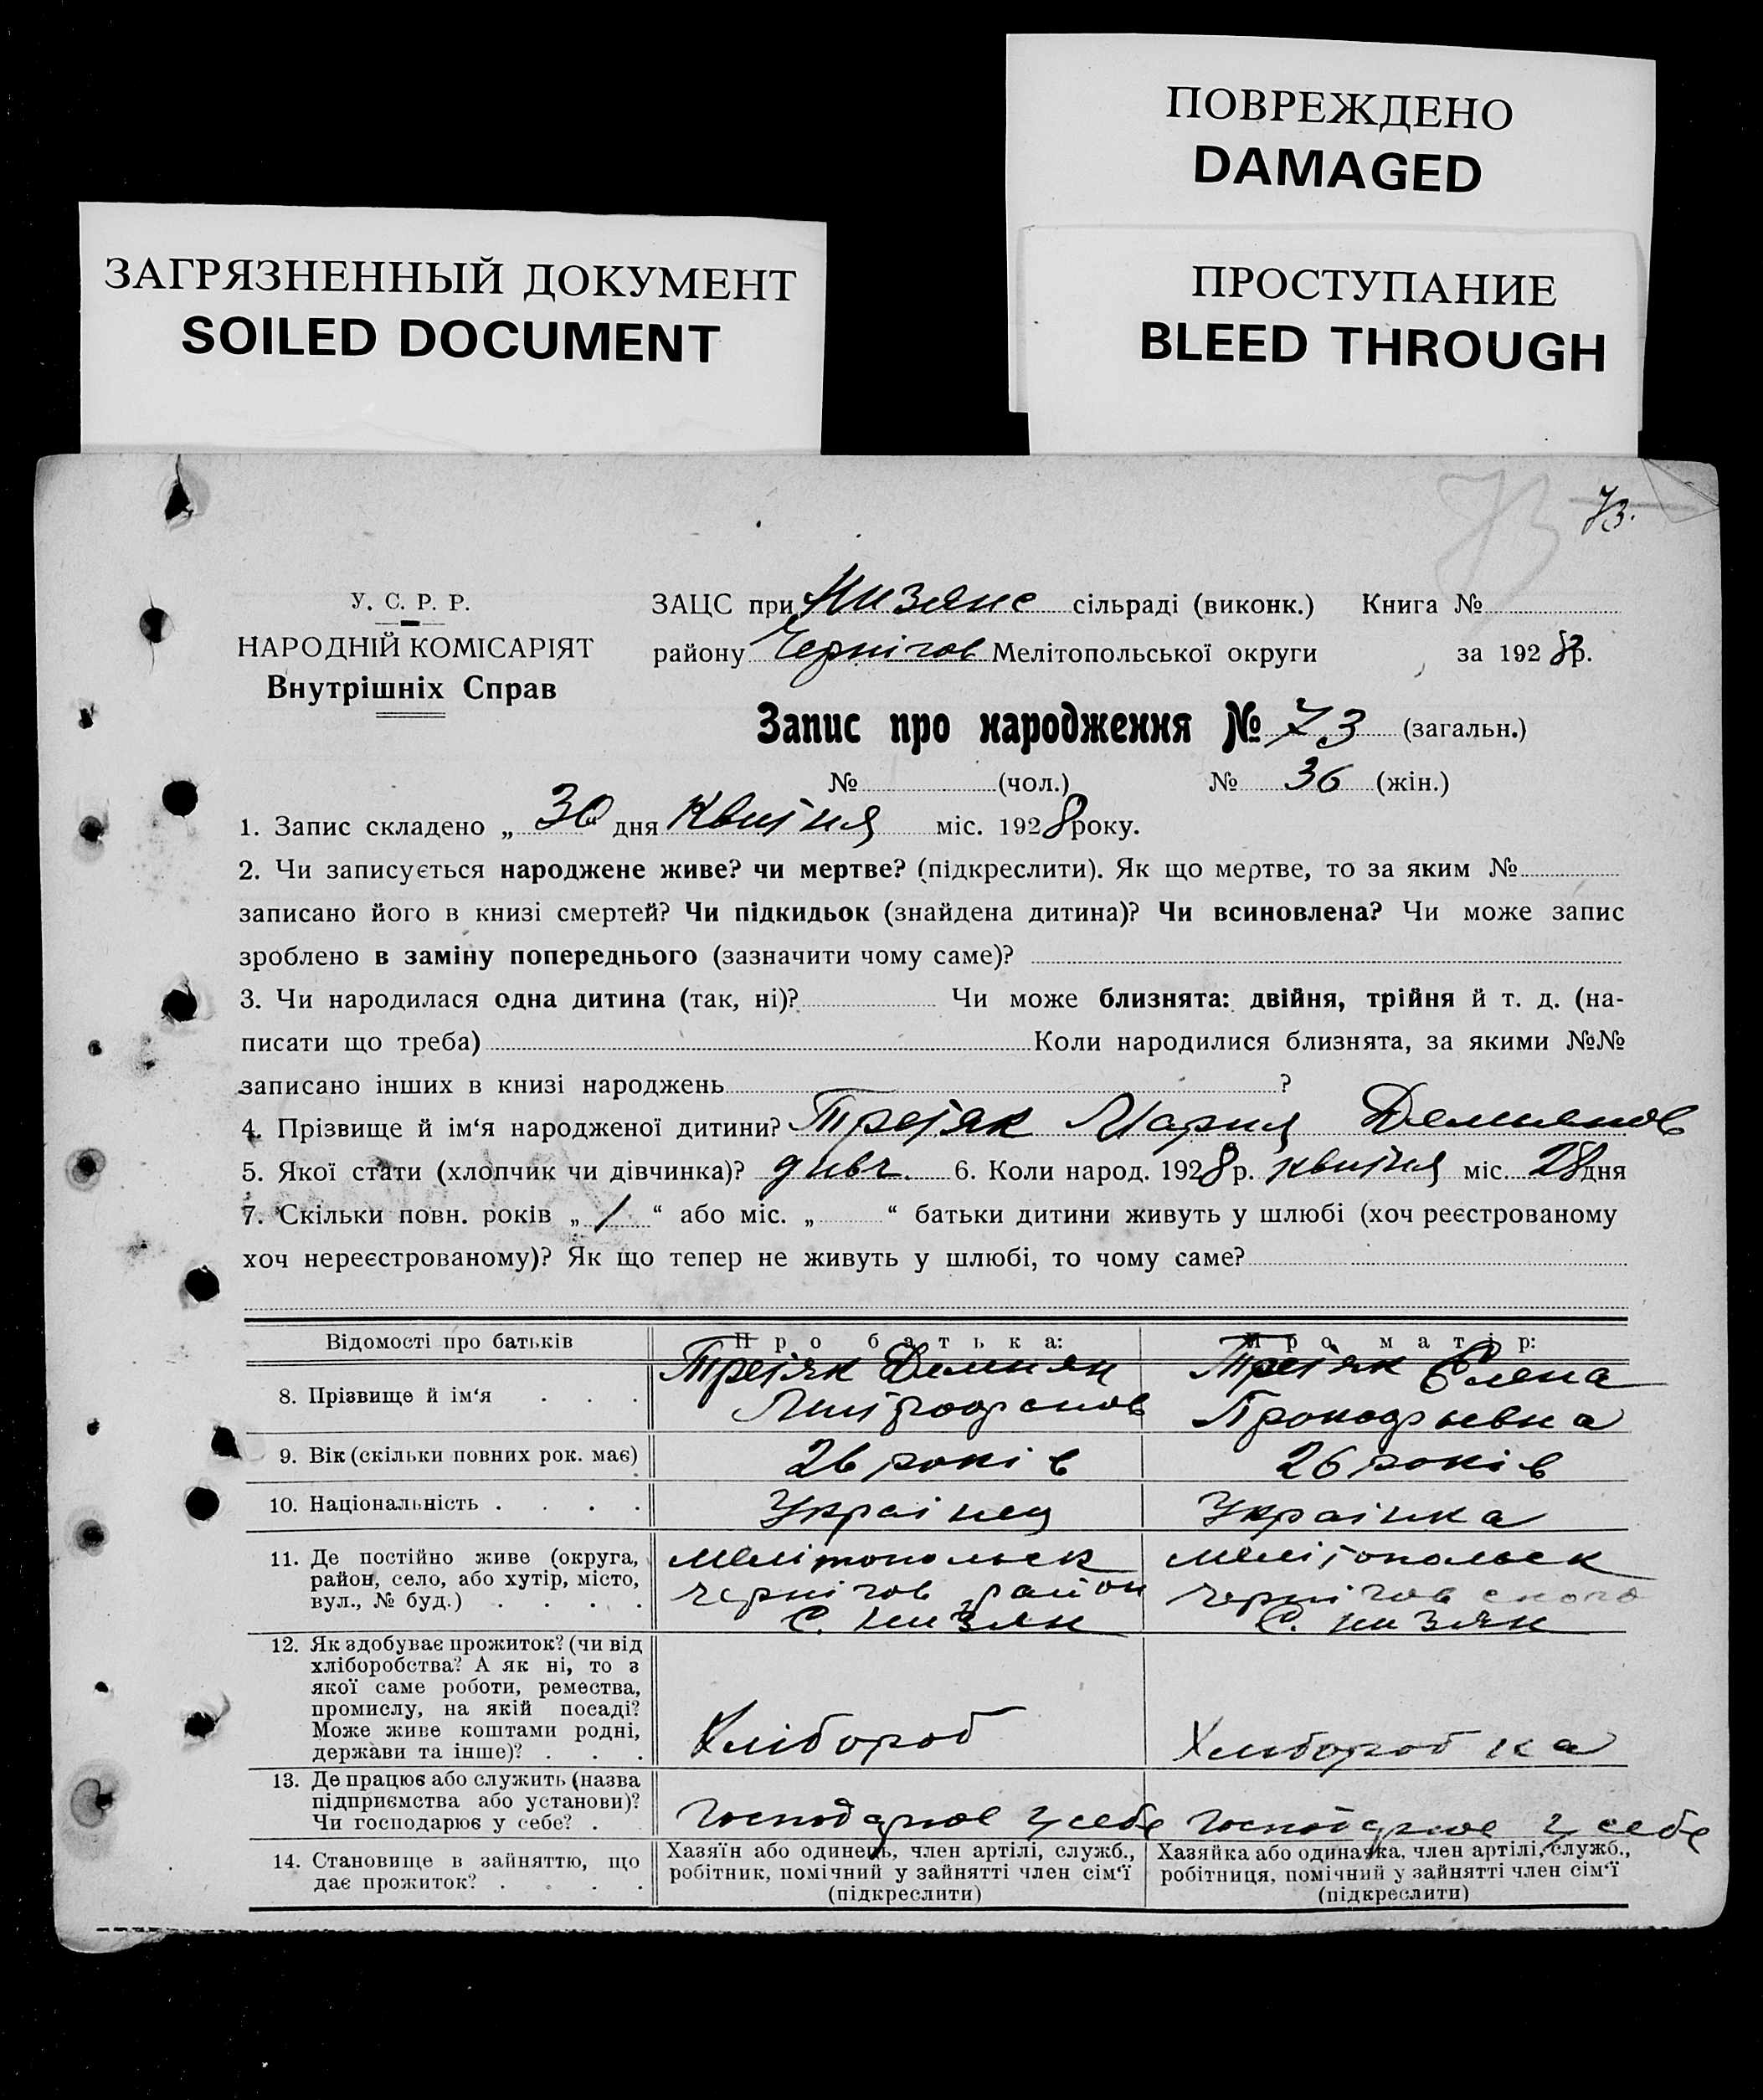 ПОВРЕЖДЕНО
DAMAGED
ЗАГРЯЗНЕННЫЙ ДОКУМЕНТ
SOILED DOCUMENT
ПРОСТУПАНИЕ
BLEED THROUGH
73
73.
У. С. Р. Р.
НАРОДНІЙ КОМІСАРІЯТ
Внутрішніх Справ
ЗАЦС при Низяне сільраді (виконк.) Книга №
району Чернігов Мелітопольської округи за 1928 р.
Запис про народження № 73 (загальн.)
№ (чол.) № 36 (жін.)
1. Запис складено „ 30 “ дня Квітня міс. 1928 року.
2. Чи записується народжене живе? чи мертве? (підкреслити). Як що мертве, то за яким №
записано його в книзі смертей? Чи підкидьок (знайдена дитина)? Чи всиновлена? Чи може запис
зроблено в заміну попереднього (зазначити чому саме)?
3. Чи народилася одна дитина (так, ні)? Чи може близнята: двійня, трійня й т. д. (на-
писати що треба) Коли народилися близнята, за якими №№
записано інших в книзі народжень ?
4. Прізвище й ім‘я народженої дитини? Третяк Мария Демянов
5. Якої стати (хлопчик чи дівчинка)? дивч. 6. Коли народ. 1928 р. квитня міс. 28 дня
7. Скільки повн. років „ 1 “ або міс. „ “ батьки дитини живуть у шлюбі (хоч реєстрованому
хоч нереєстрованому)? Як що тепер не живуть у шлюбі, то чому саме?
Відомості про батьків Про батька: Про матір:
8. Прізвище й ім‘я . . . Третяк Демиян Митрофанов Третяк Елена Прокофьевна
9. Вік (скільки повних рок. має) 26 років 26 років
10. Національність . . . . Украінец Украінка
11. Де постійно живе (округа,
район, село, або хутір, місто,
вул., № буд.) . . . .
Мелітопольск
Чернігов район
С. Низян
Мелітопольск
Чернігов ского
С. Низян
12. Як здобуває прожиток? (чи від
хліборобства? А як ні, то з
якої саме роботи, ремества,
промислу, на якій посаді?
Може живе коштами родні,
держави та інше)? . . .
Хлібороб Хлибороб ка
13. Де працює або служить (назва
підприємства або установи)?
Чи господарює у себе? .
Господарює у себе Господарює у себе
14. Становище в зайняттю, що
дає прожиток? . . . .
Хазяїн або одинець, член артілі, служб.,
робітник, помічний у зайнятті член сім‘ї
(підкреслити)
Хазяйка або одиначка, член артілі, служб.,
робітниця, помічний у зайнятті член сім‘ї
(підкреслити)